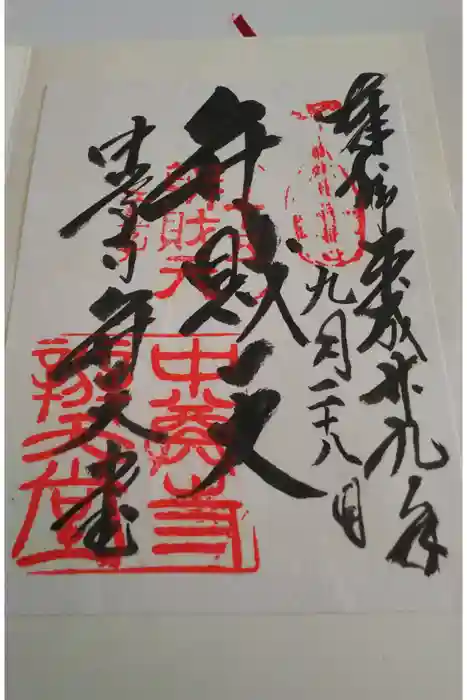 奉拝 平成廿九年
九月二十八日
弁財天
辨財天
中尊寺 弁天堂
中尊寺
辨天堂